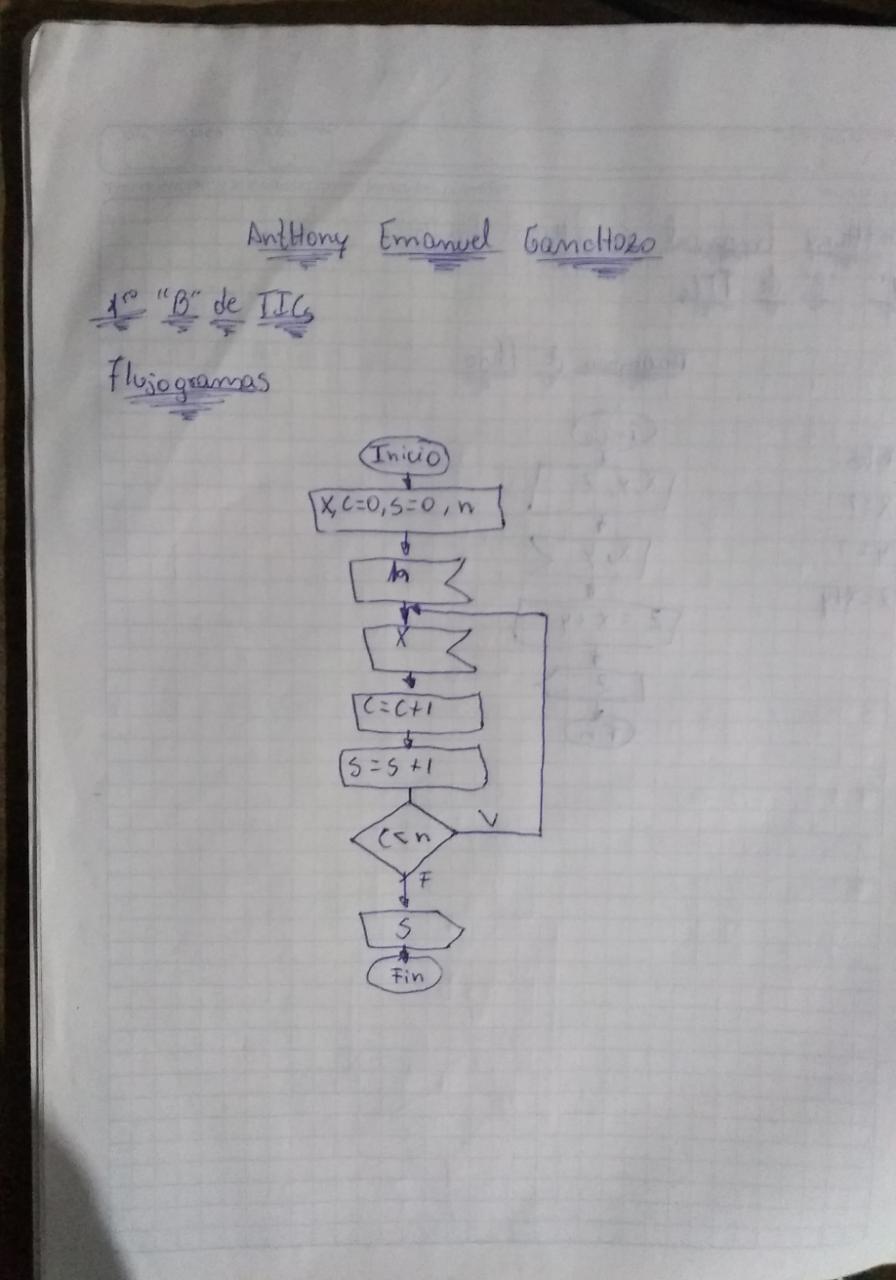 Anthony Emanuel Ganchozo
1ro "B" de TICs
Flujogramas
Inicio
X, C=0, S=0, n
n
X
C=C+1
S=S+1
C<n
V
F
S
Fin